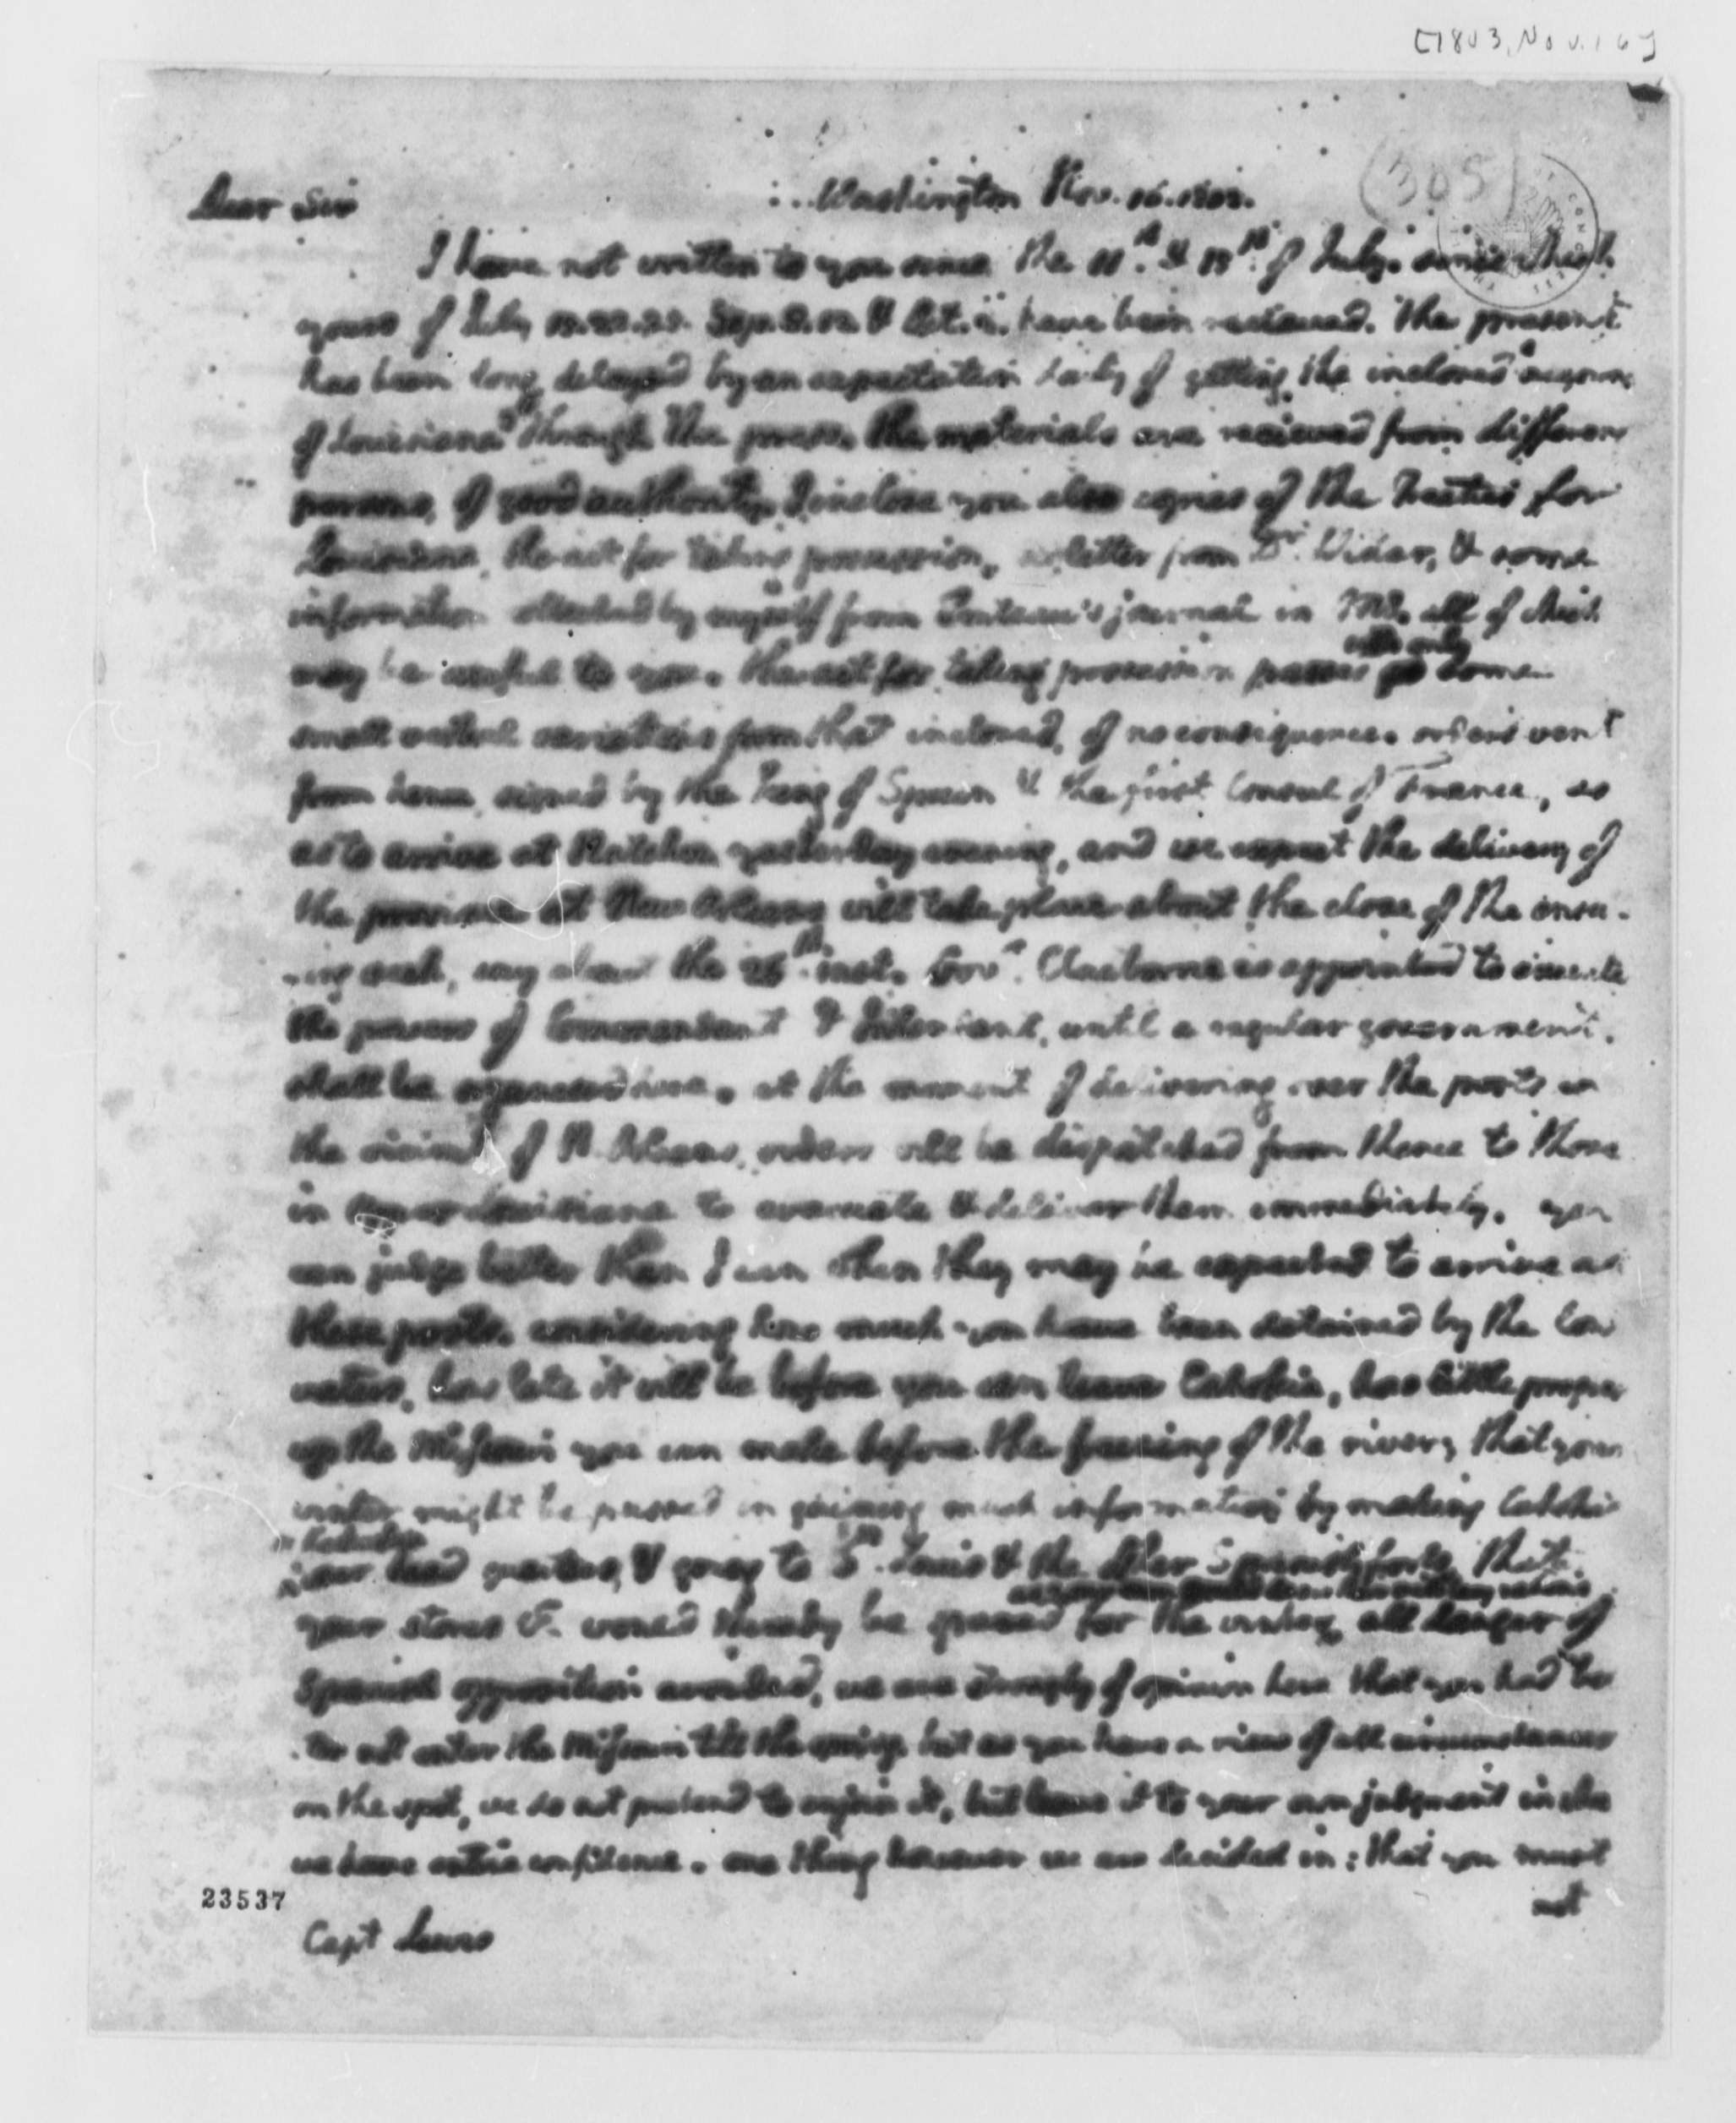 [1803, Nov. 16]
(305)
Dear Sir
Washington Nov. 16. 1803.
I have not written to you since the 11th. & 15th. of July. since that
yours of July & Oct. have been recieved. the present
has been long delayed by an expectation daily of getting the inclosed account
of Louisiana through the press. the materials are recieved from different
persons, of good authority. I inclose you also copies of the Treaties for
Louisiana, the act for taking possession, a letter from Dr. & some
information collected by myself from Truteau's journal in MS. all of which
may be useful to you. the act for taking possession passes with only some
small verbal variations from that inclosed, of no consequence. orders went
from hence, signed by the King of Spain & the first Consul of France, so
as to arrive at Natchez yesterday evening, and we expect the delivery of
the province at New Orleans will take place about the close of the ensu-
-ing week, say about the 26th. inst. Govr. Claiborne is appointed to execute
the powers of Commandant & Intendant, until a regular government
shall be organised here. at the moment of delivering over the posts in
the vicinity of N. Orleans, orders will be dispatched from thence to those
in Upper Louisiana to evacuate & deliver them immediately. you
can judge better than I can when they may be expected to arrive at
these posts. considering how much you have been detained by the low
waters, how late it will be before you can leave Cahokia, how little progress
up the Missouri you can make before the freezing of the river; that your
winter might be passed in gaining much information by making Cahokia
or Kaskaskia
your head quarters, & going to St. Louis & the other Spanish forts that
your stores &c. would thereby be spared for the winter, all danger of
Spanish opposition avoided, we are strongly of opinion here that you had bet
ter not enter the Missouri till the spring. but as you have a view of all circumstances
on the spot, we do not pretend to enjoin it, but leave it to your own judgment in which
we have entire confidence. one thing however we are decided in: that you must
not
23537
Capt Lewis